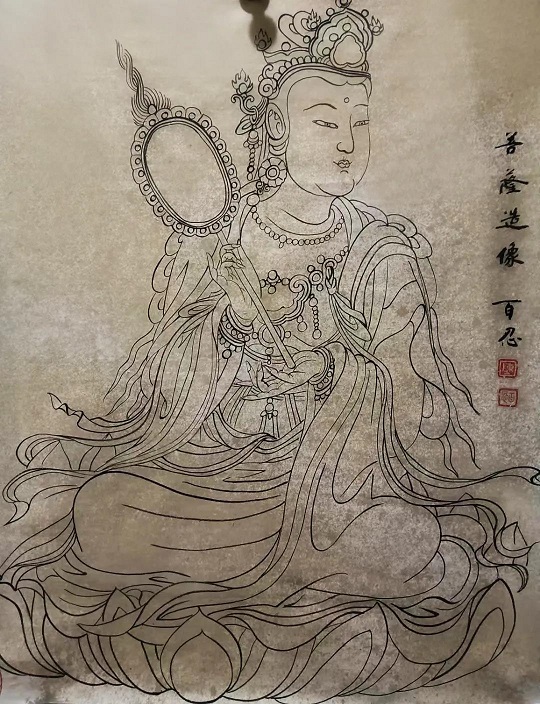 菩薩造像 百忍